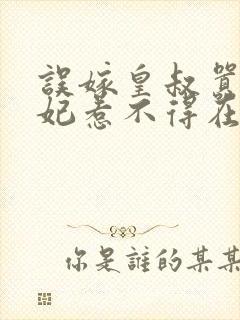 誤嫁皇叔
妃惹不得在
你是誰的某某